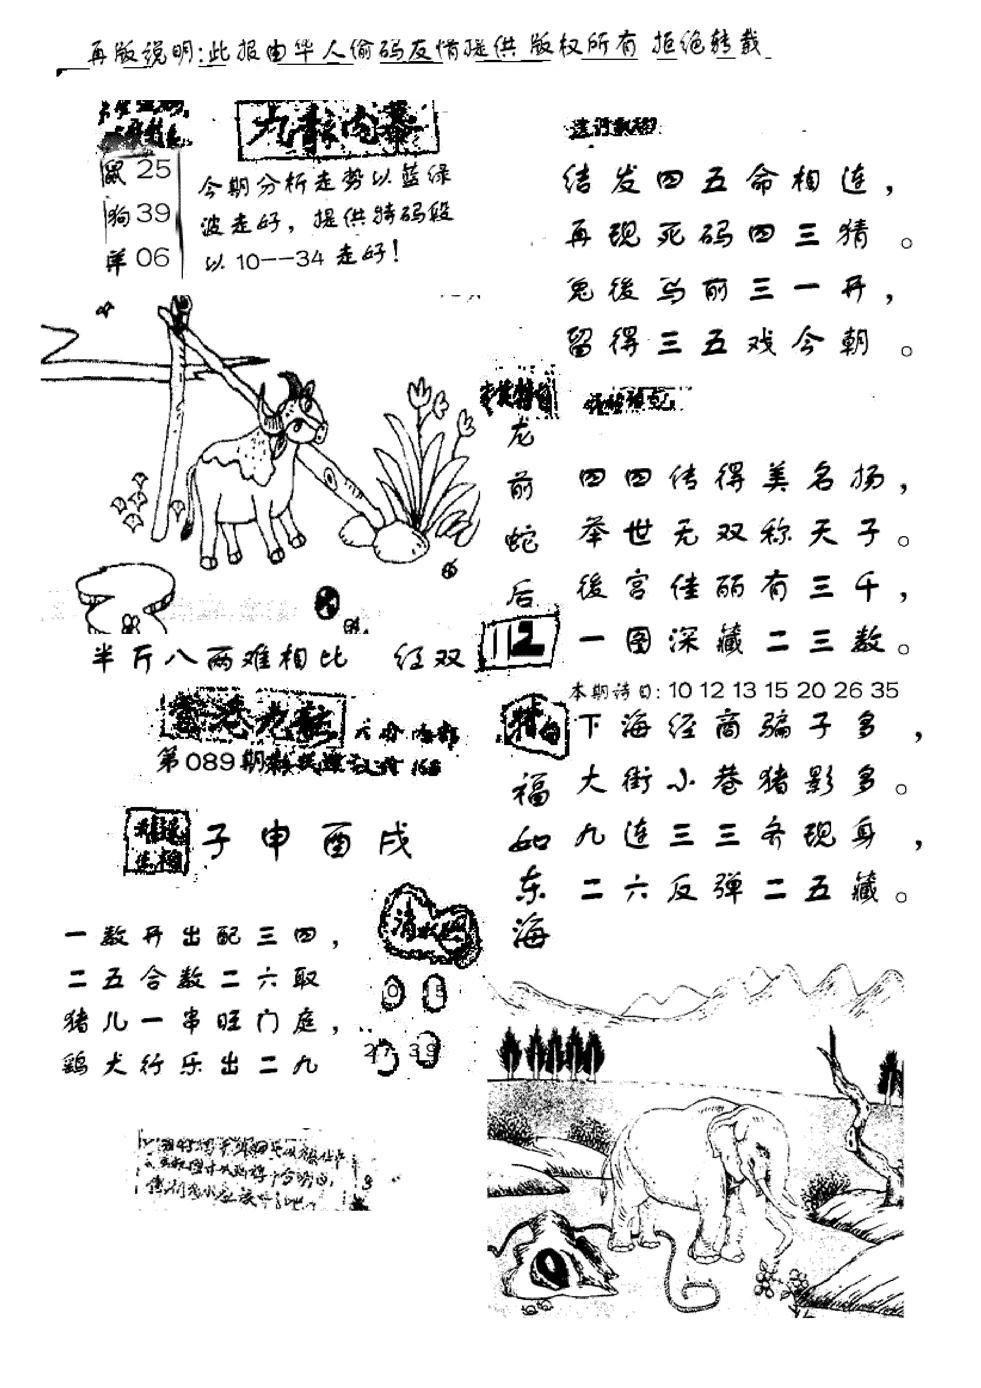 再版说明:此报由华人偷码友情提供 版权所有 拒绝转载
九龍内幕
鼠 25
狗 39
羊 06
今期分析走势以蓝绿
波走好，提供特码段
以 10--34 走好！
结发四五命相连，
再现死码四三猜。
兔後马前三一开，
留得三五戏今朝。
龙前蛇后
112
四四传得美名扬，
举世无双称天子。
後宫佳丽有三千，
一图深藏二三数。
本期诗曰: 10 12 13 15 20 26 35
半斤八两难相比 红双
香港九龍
第089期
子申酉戌
一数开出配三四，
二五合数二六取
猪儿一串旺门庭，
鸡犬行乐出二九
15
27 39
福如东海
下海经商骗子多，
大街小巷猪影多。
九连三三务现身，
二六反弹二五藏。